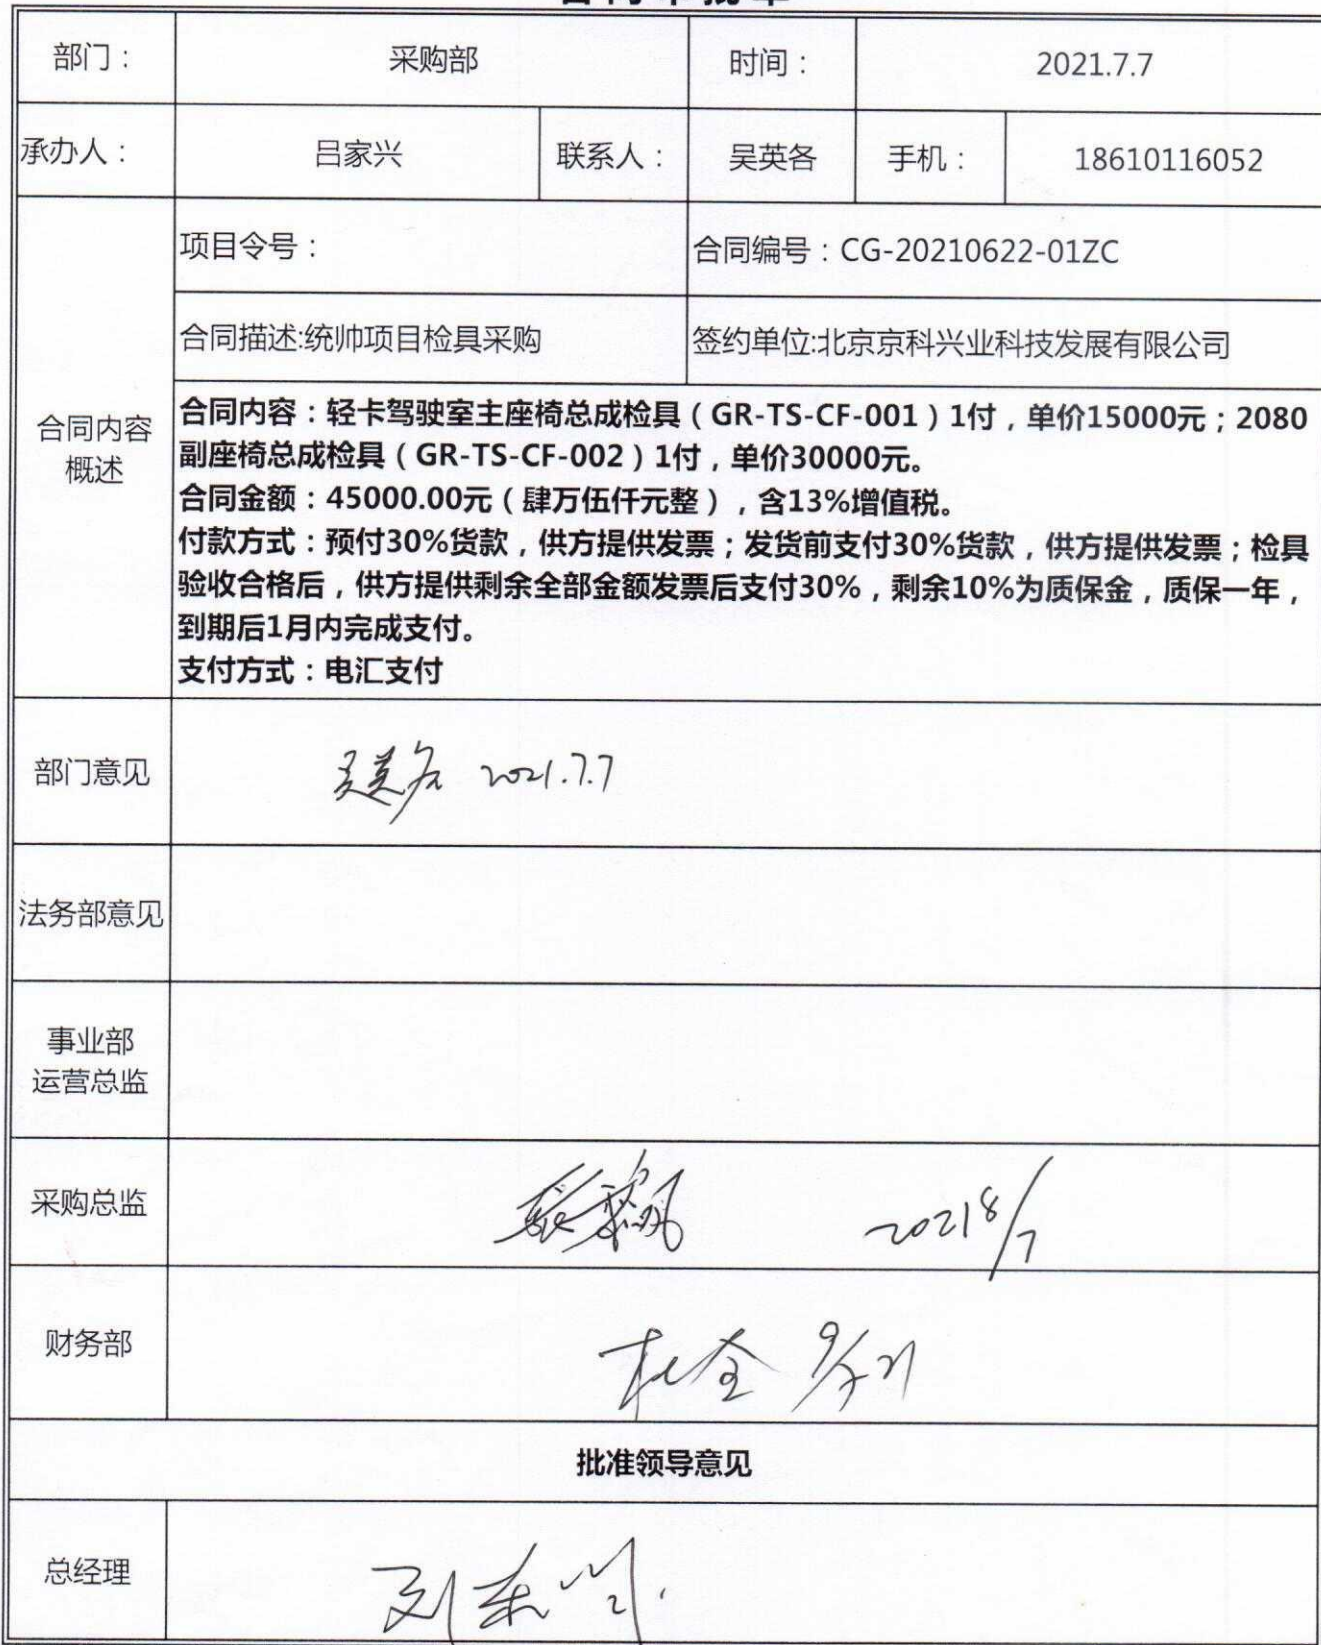 合同审批单
部门： 采购部 时间： 2021.7.7
承办人： 吕家兴 联系人： 吴英各 手机： 18610116052
项目令号： 合同编号：CG-20210622-01ZC
合同描述:统帅项目检具采购 签约单位:北京京科兴业科技发展有限公司
合同内容
概述
合同内容：轻卡驾驶室主座椅总成检具（GR-TS-CF-001）1付，单价15000元；2080
副座椅总成检具（GR-TS-CF-002）1付，单价30000元。
合同金额：45000.00元（肆万伍仟元整），含13%增值税。
付款方式：预付30%货款，供方提供发票；发货前支付30%货款，供方提供发票；检具
验收合格后，供方提供剩余全部金额发票后支付30%，剩余10%为质保金，质保一年，
到期后1月内完成支付。
支付方式：电汇支付
部门意见 吴英各 2021.7.7
法务部意见
事业部
运营总监
采购总监 2021 8/7
财务部 杜全 9/7 21
批准领导意见
总经理